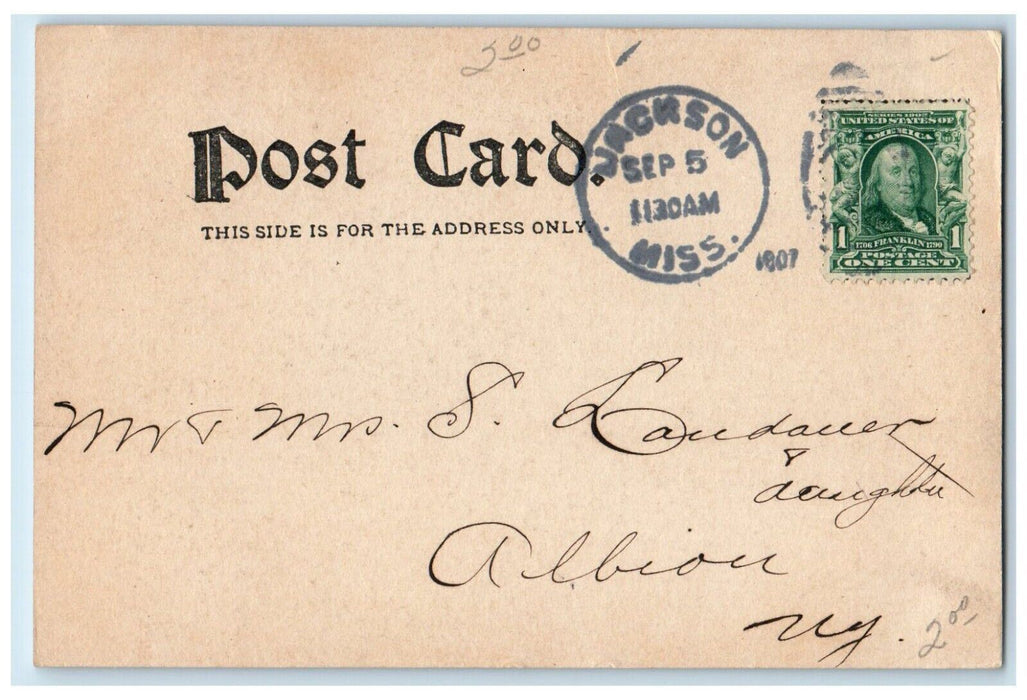 2.00
Post Card.
THIS SIDE IS FOR THE ADDRESS ONLY.
JACKSON
SEP 5
1130AM
MISS.
1907
SERIES 1902
UNITED STATES OF
AMERICA
1 1706 FRANKLIN 1790 1
POSTAGE
ONE CENT
Mr & Mrs. S. Landauer
& daughter
Albion
Ny.
2.00